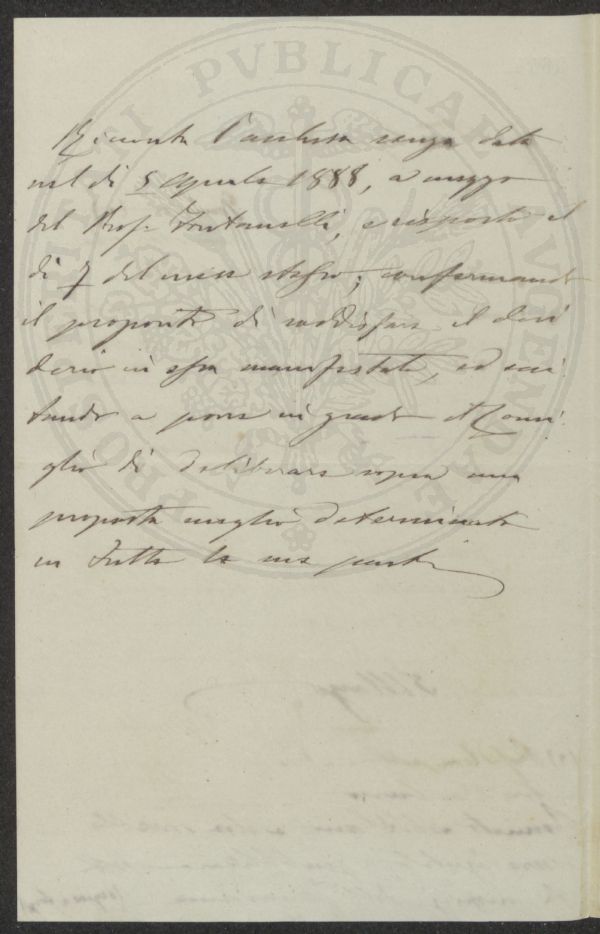 Ricevuta l'anchessa senza data
nel dì 5 Aprile 1888, a mezzo
del Prof. Fontanelli, e risposto il
dì 7 del mese stesso; confermando
il proposito di soddisfare il desi
derio in essa manifestato, ed invi
tando a porre in grado il Consi
glio di deliberare sopra una
proposta meglio determinata
in tutte le sue parti
PROSPERITATI PVBLICAE AVGENDAE